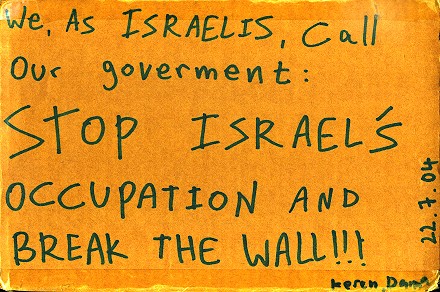 We, As ISRAELIS, Call
Our goverment:
STOP ISRAEL'S
OCCUPATION AND
BREAK THE WALL!!!
22.7.04
keren